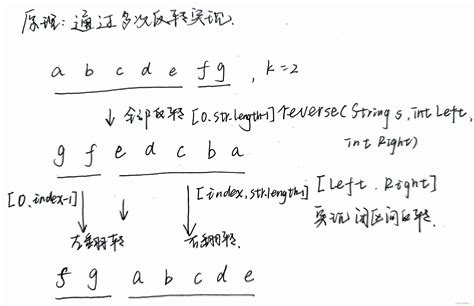 原理：通过多次反转实现.
a b c d e f g , k=2
↓ 全部反转 [0.str.length-1] reverse(String s, int Left, int Right)
g f e d c b a
[0.index-1] [index,str.length-1] [Left . Right]
左翻转 右翻转. 实现闭区间反转.
f g a b c d e